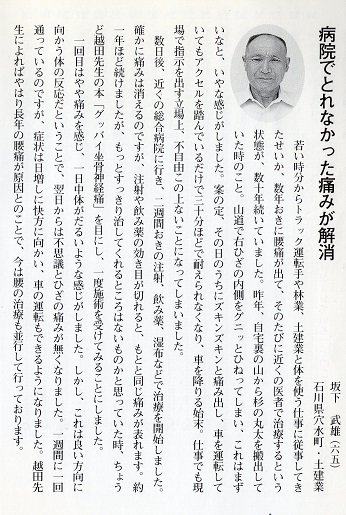 病院でとれなかった痛みが解消
坂下　武雄（六五）
石川県穴水町・土建業
若い時分からトラック運転手や林業、土建業と体を使う仕事に従事してき
たせいか、数年おきに腰痛が出て、そのたびに近くの医者で治療するという
状態が、数十年続いていました。昨年、自宅裏の山から杉の丸太を搬出して
いた時のこと。山道で右ひざの内側をグニッとひねってしまい、これはまず
いなと、いやな感じがしました。案の定、その日のうちにズキンズキンと痛み出し、車を運転して
いてもアクセルを踏んでいるだけで三十分ほどで耐えられなくなり、車を降りる始末。仕事でも現
場で指示を出す立場上、不自由この上ないことになってしまいました。
数日後、近くの総合病院に行き、二週間おきの注射、飲み薬、湿布などで治療を開始しました。
確かに痛みは消えるのですが、注射や飲み薬の効き目が切れると、もとと同じ痛みが表れます。約
一年ほど続けましたが、もっとすっきり治してくれるところはないものかと思っていた時、ちょう
ど越田先生の本「グッバイ坐骨神経痛」を目にし、一度施術を受けてみることにしました。
一回目はやや痛みを感じ、一日中体がだるいような感じがしました。しかし、これは良い方向に
向かう体の反応だということで、翌日からは不思議とひざの痛みが無くなりました。一週間に一回
通っているのですが、症状は日増しに快方に向かい、車の運転もできるようになりました。越田先
生によればやはり長年の腰痛が原因とのことで、今は腰の治療も並行して行っております。